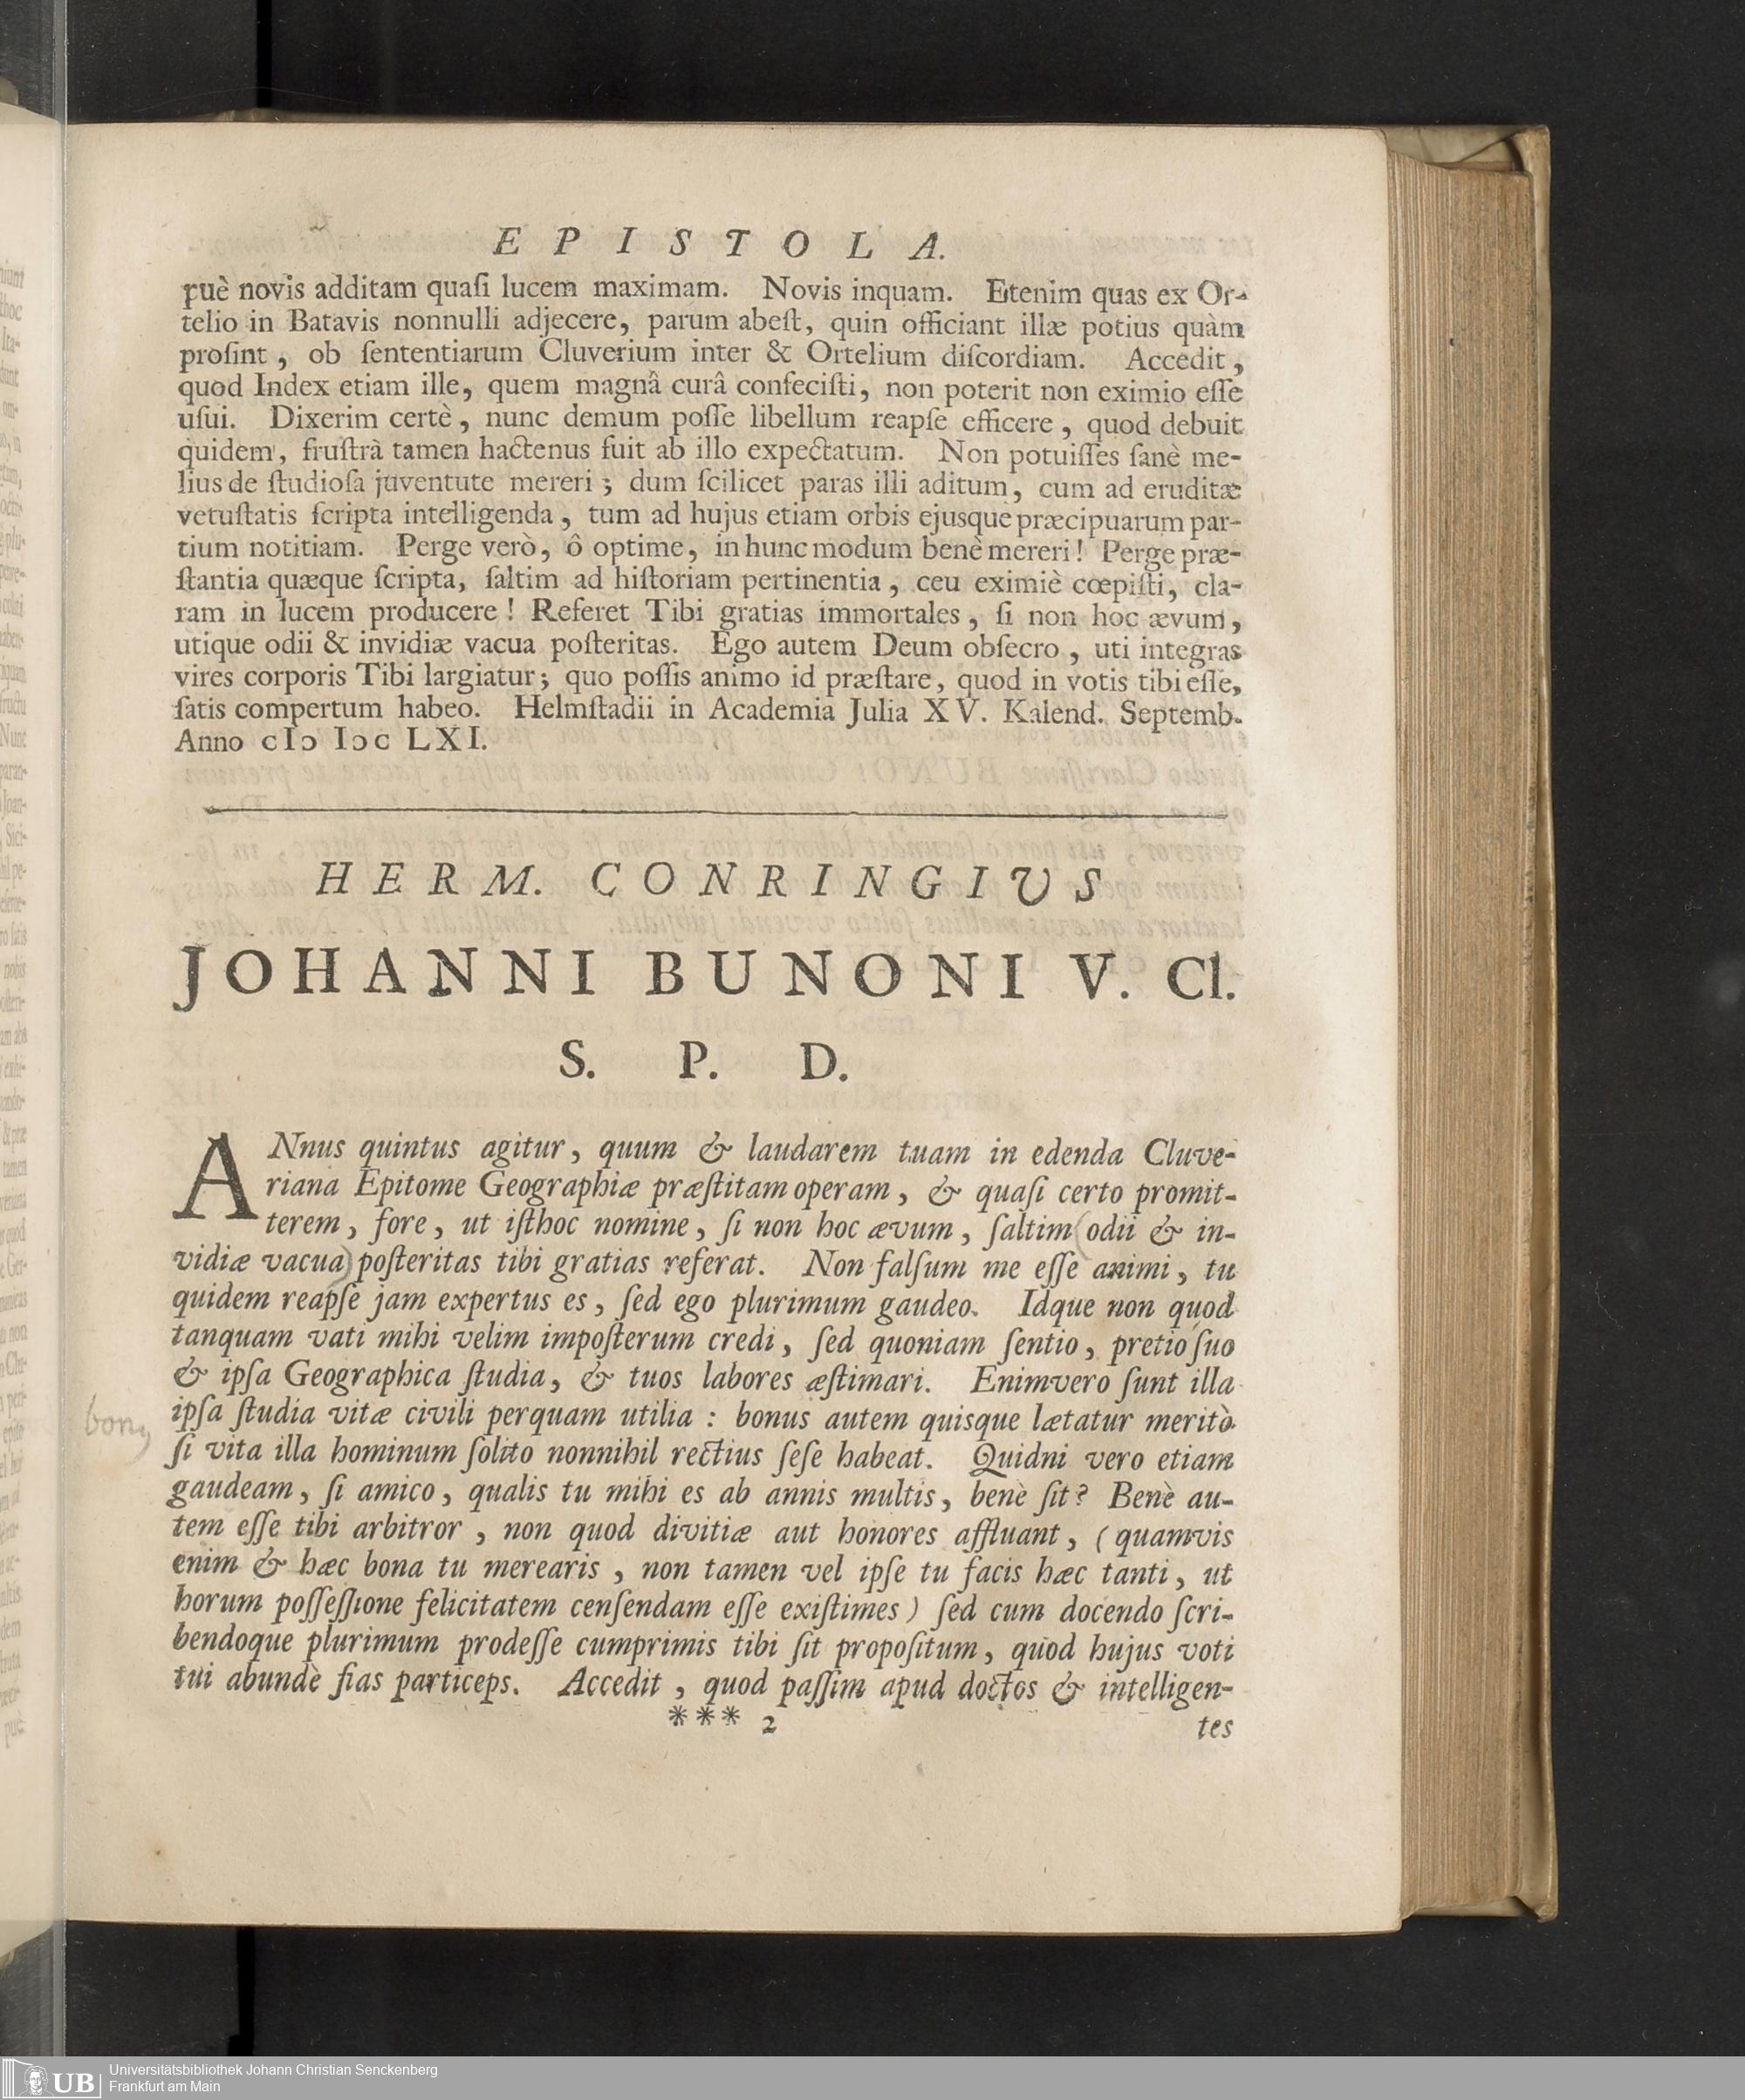 EPISTOLA.
ruè novis additam quaſi lucem maximam. Novis inquam. Etenim quas ex Or-
telio in Batavis nonnulli adjecere, parum abeſt, quin officiant illæ potius quàm
proſint, ob ſententiarum Cluverium inter & Ortelium diſcordiam. Accedit,
quod Index etiam ille, quem magnâ curâ confeciſti, non poterit non eximio eſſe
uſui. Dixerim certè, nunc demum poſſe libellum reapſe efficere, quod debuit
quidem, fruſtrà tamen hactenus fuit ab illo expectatum. Non potuiſſes ſanè me-
lius de ſtudioſa juventute mereri; dum ſcilicet paras illi aditum, cum ad eruditæ
vetuſtatis ſcripta intelligenda, tum ad hujus etiam orbis ejusque præcipuarum par-
tium notitiam. Perge verò, ô optime, in hunc modum benè mereri! Perge præ-
ſtantia quæque ſcripta, ſaltim ad hiſtoriam pertinentia, ceu eximiè cœpiſti, cla-
ram in lucem producere! Referet Tibi gratias immortales, ſi non hoc ævum,
utique odii & invidiæ vacua poſteritas. Ego autem Deum obſecro, uti integras
vires corporis Tibi largiatur; quo poſſis animo id præſtare, quod in votis tibi eſſe,
ſatis compertum habeo. Helmſtadii in Academia Julia XV. Kalend. Septemb.
Anno cIɔ Iɔc LXI.
HERM. CONRINGIUS
JOHANNI BUNONI V. Cl.
S. P. D.
ANnus quintus agitur, quum & laudarem tuam in edenda Cluve-
riana Epitome Geographiæ præſtitam operam, & quaſi certo promit-
terem, fore, ut iſthoc nomine, ſi non hoc ævum, ſaltim (odii & in-
vidiæ vacua) poſteritas tibi gratias referat. Non falſum me eſſe animi, tu
quidem reapſe jam expertus es, ſed ego plurimum gaudeo. Idque non quod
tanquam vati mihi velim impoſterum credi, ſed quoniam ſentio, pretio ſuo
& ipſa Geographica ſtudia, & tuos labores æſtimari. Enimvero ſunt illa
bonꝰ
ipſa ſtudia vitæ civili perquam utilia : bonus autem quisque lætatur meritò
ſi vita illa hominum ſolito nonnihil rectius ſeſe habeat. Quidni vero etiam
gaudeam, ſi amico, qualis tu mihi es ab annis multis, benè ſit? Benè au-
tem eſſe tibi arbitror, non quod divitiæ aut honores affluant, (quamvis
enim & hæc bona tu merearis, non tamen vel ipſe tu facis hæc tanti, ut
horum poſſeſſione felicitatem cenſendam eſſe exiſtimes) ſed cum docendo ſcri-
bendoque plurimum prodeſſe cumprimis tibi ſit propoſitum, quod hujus voti
tui abundè fias particeps. Accedit, quod paſſim apud doctos & intelligen-
*** 2
tes
UB
Universitätsbibliothek Johann Christian Senckenberg
Frankfurt am Main